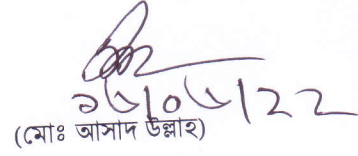 ১৬/০৬/২২
(মোঃ আসাদ উল্লাহ)